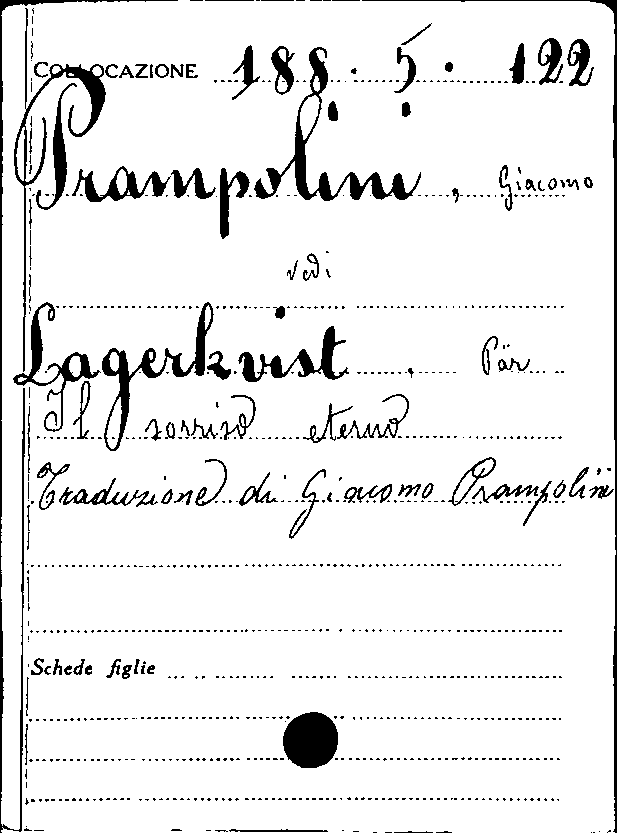 COLLOCAZIONE 188. 5. 122
Prampolini, Giacomo
vedi
Lagerkvist, Pär
Il sorriso eterno
Traduzione di Giacomo Prampolini
Schede figlie